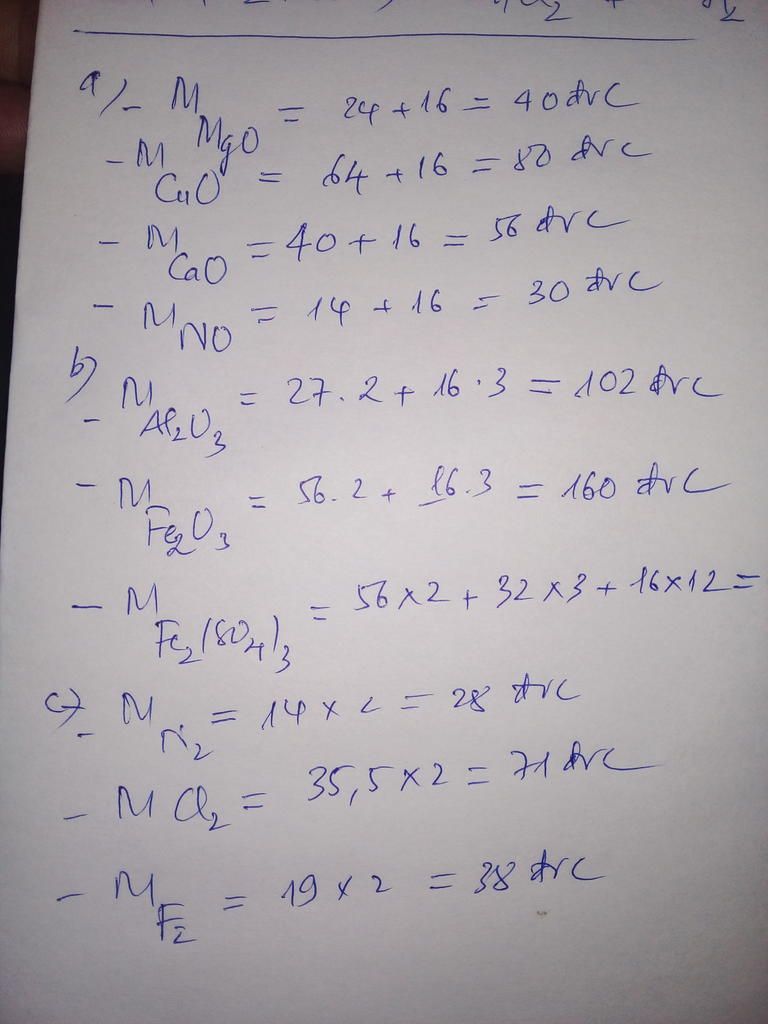 a) - M MgO = 24 + 16 = 40 đvC
- M CuO = 64 + 16 = 80 đvC
- M CaO = 40 + 16 = 56 đvC
- M NO = 14 + 16 = 30 đvC
b)
- M Al₂O₃ = 27.2 + 16.3 = 102 đvC
- M Fe₂O₃ = 56.2 + 16.3 = 160 đvC
- M Fe₂(SO₄)₃ = 56x2 + 32x3 + 16x12 =
c) - M N₂ = 14 x 2 = 28 đvC
- M Cl₂ = 35,5 x 2 = 71 đvC
- M F₂ = 19 x 2 = 38 đvC